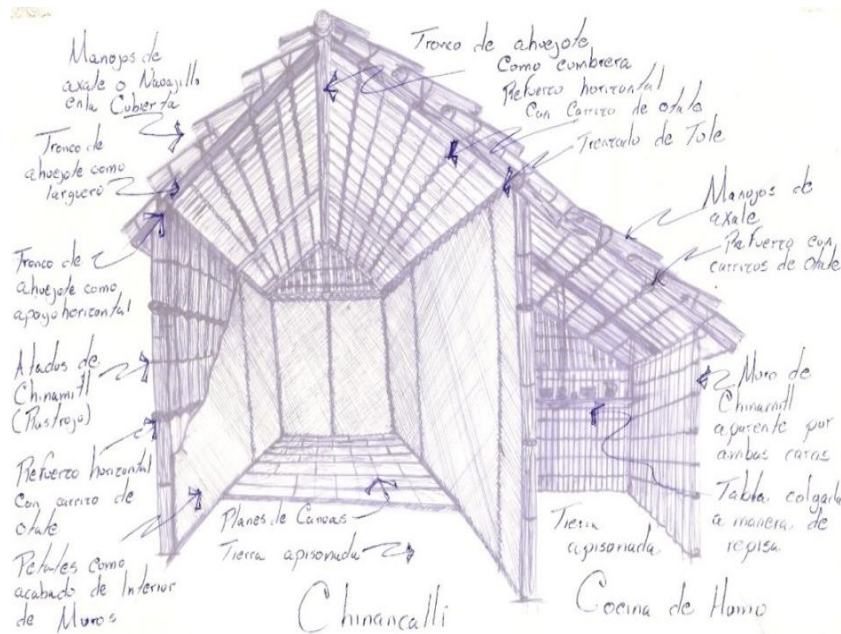 Manojos de
axale o Navajillo
en la Cubierta
Tronco de
ahuejote como
larguero
Tronco de
ahuejote como
apoyo horizontal
Atados de
Chinamitl
(Rastrojo)
Refuerzo horizontal
con carrizo de
otate
Petates como
acabado de Interior
de Muros
Tronco de ahuejote
Como cumbrera
Refuerzo horizontal
Con Carrizo de otate
Trenzado de Tule
Manojos de
axale
Refuerzo con
carrizos de Otate
Muro de
Chinamitl
aparente por
ambas caras
Tabla colgada
a manera de
repisa
Planes de Canoas
Tierra apisonada
Tierra
apisonada
Chinancalli
Cocina de Humo